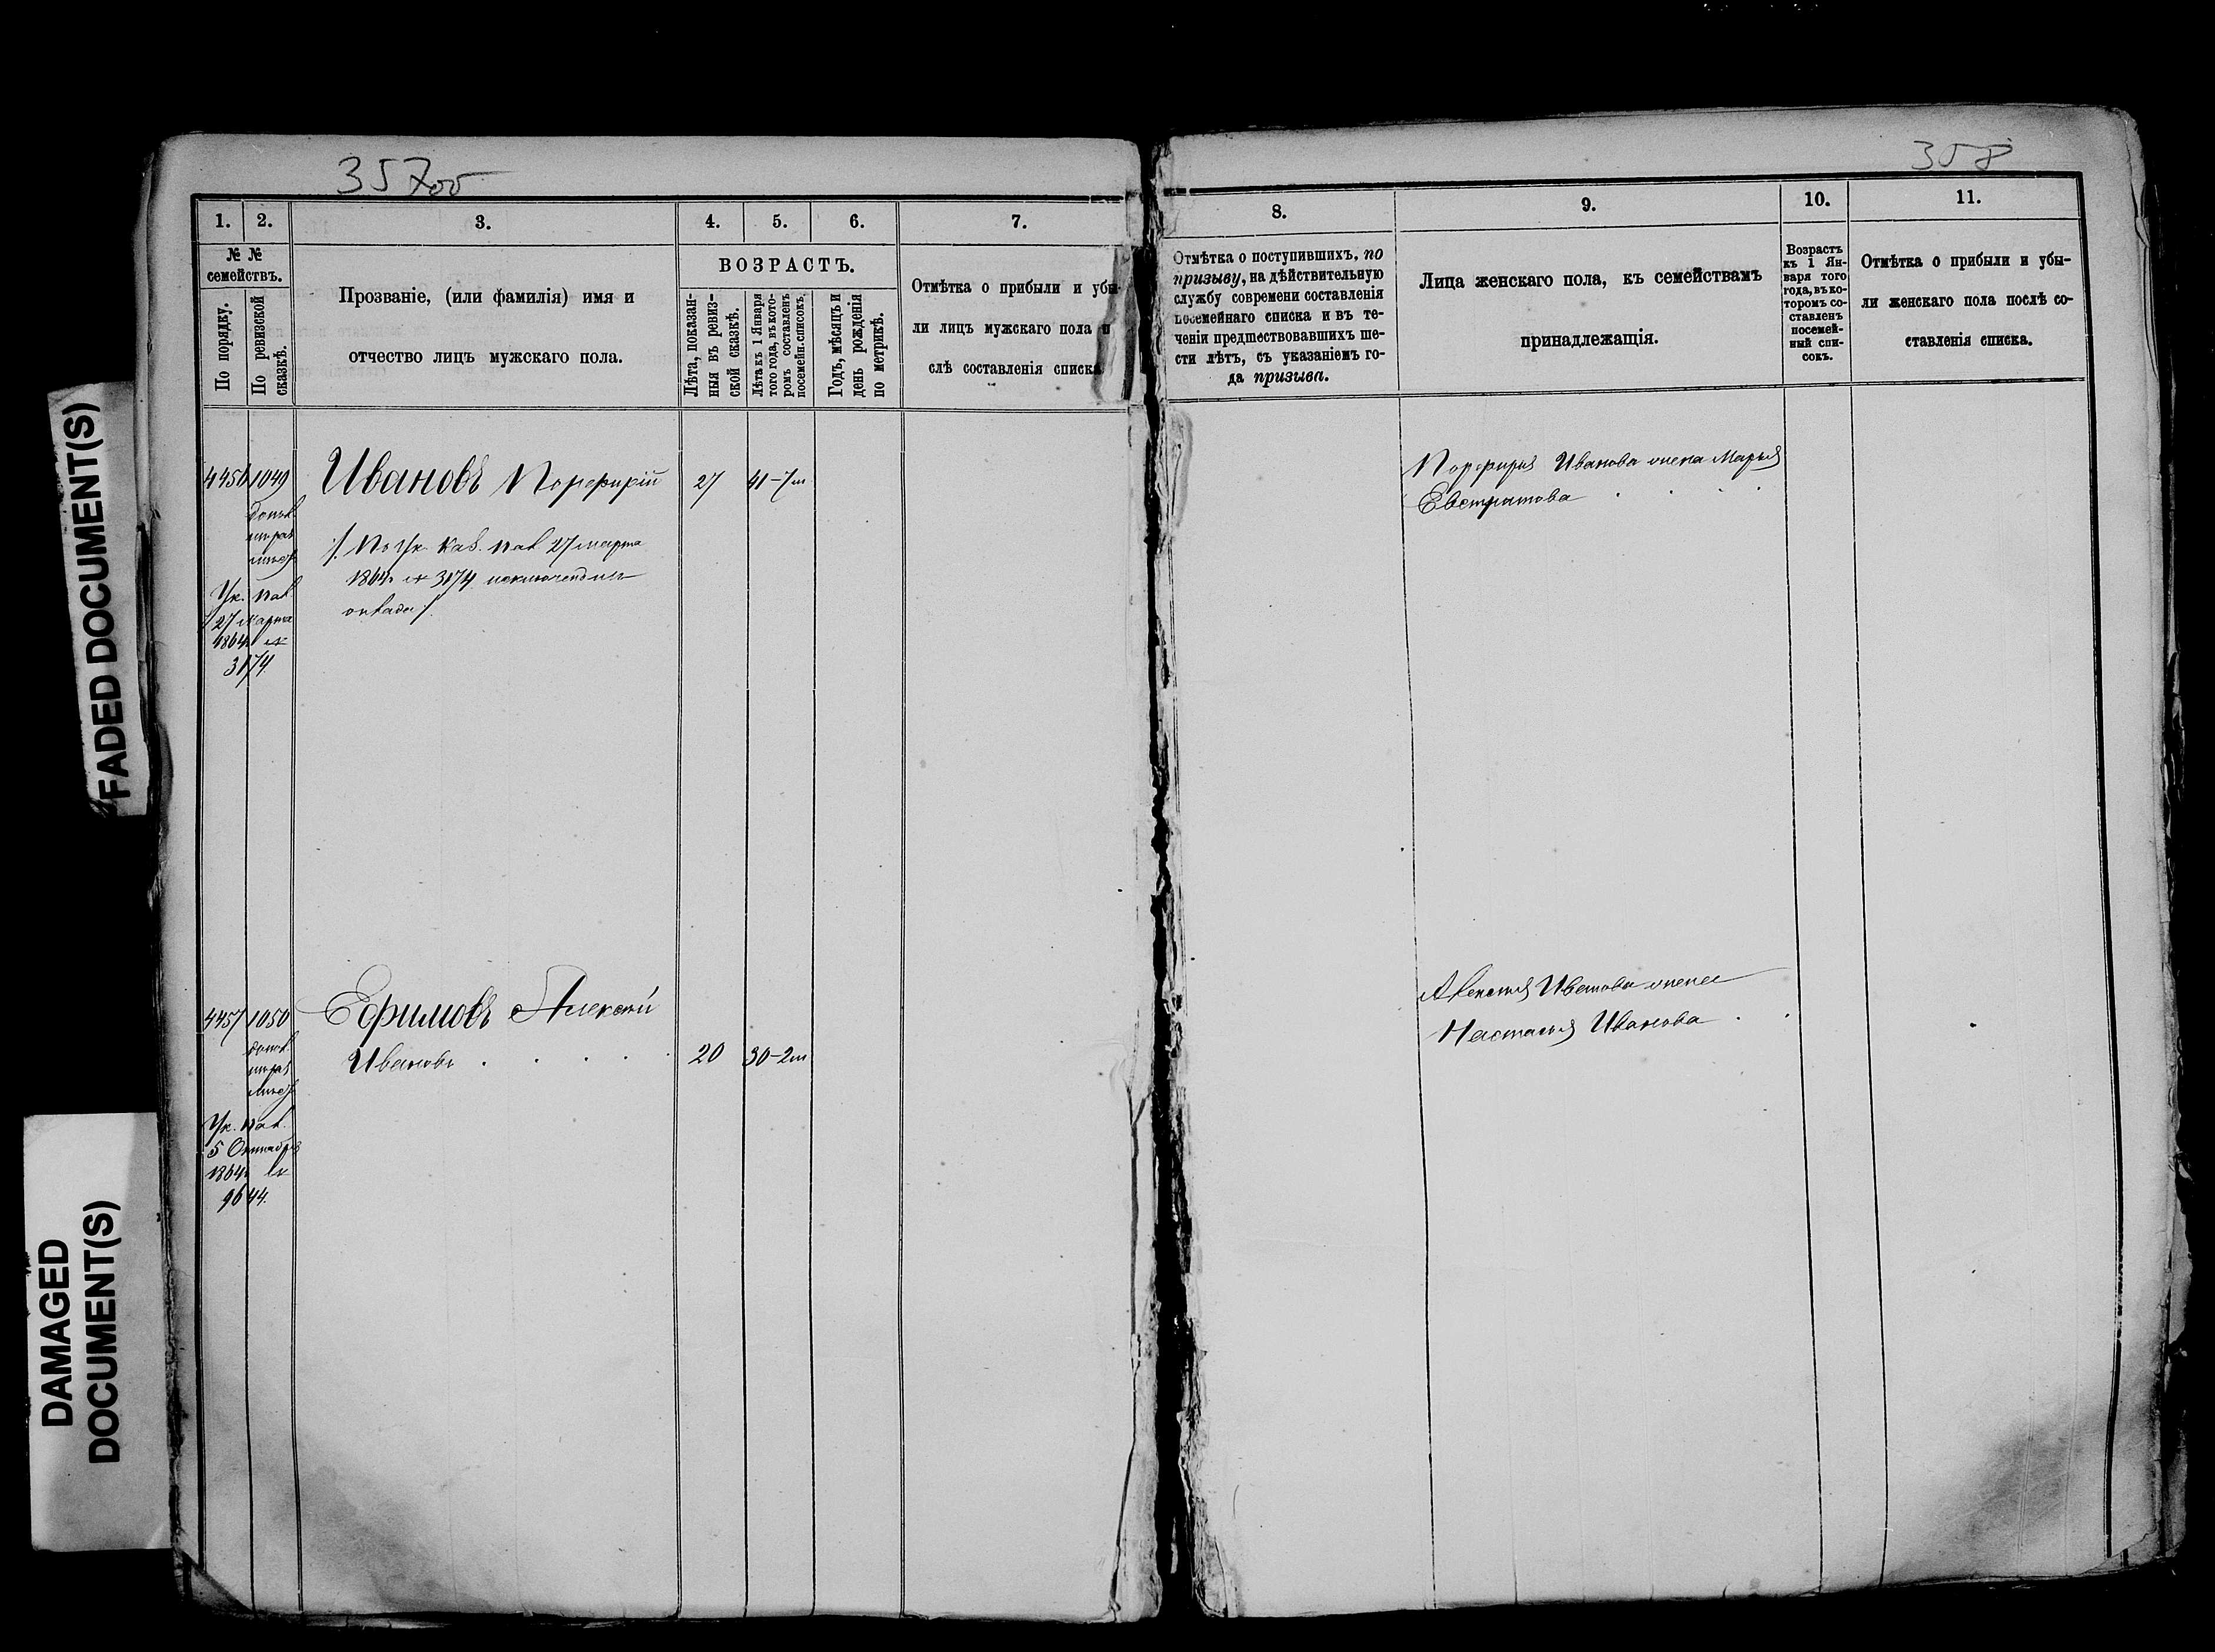 357об
358
1. 2. 3. 4. 5. 6. 7.
№ №
семействъ.
По порядку.
По ревизской
сказкѣ.
Прозваніе, (или фамилія) имя и
отчество лицъ мужскаго пола.
ВОЗРАСТЪ.
Лѣта, показан-
ныя въ ревиз-
ской сказкѣ.
Лѣта къ 1 Января
того года, въ кото-
ромъ составленъ
посемейн. списокъ.
Годъ, мѣсяцъ и
день рожденія
по метрикѣ.
Отмѣтка о прибыли и убы-
ли лицъ мужскаго пола п
слѣ составленія списка
4456 1049 Ивановъ Порефирій 27 41-7м
допол
/. По Ук. Каз. пал 27 марта
1864г № 3174 исключенъ изъ
оклада /.
Ук. пал
27 марта
1864г №
3174
4457 1050 Ефимовъ Алексѣй
Ивановъ 20 30-2м
допол
Ук. пал.
5 Октября
1864г №
9644.
8. 9. 10. 11.
Отмѣтка о поступившихъ, по
призыву, на дѣйствительную
службу современи составленія
посемейнаго списка и въ те-
ченіи предшествовавшихъ ше-
сти лѣтъ, съ указаніемъ го-
да призыва.
Лица женскаго пола, къ семействамъ
принадлежащія.
Возрастъ
къ 1 Ян-
варя того
года, въ ко-
торомъ со-
ставленъ
посемей-
ный спи-
сокъ.
Отмѣтка о прибыли и убы-
ли женскаго пола послѣ со-
ставленія списка.
Порефирія Иванова жена Марья
Евстратова
Алексѣя Иванова жена
Настасья Иванова
FADED DOCUMENT(S)
DAMAGED
DOCUMENT(S)